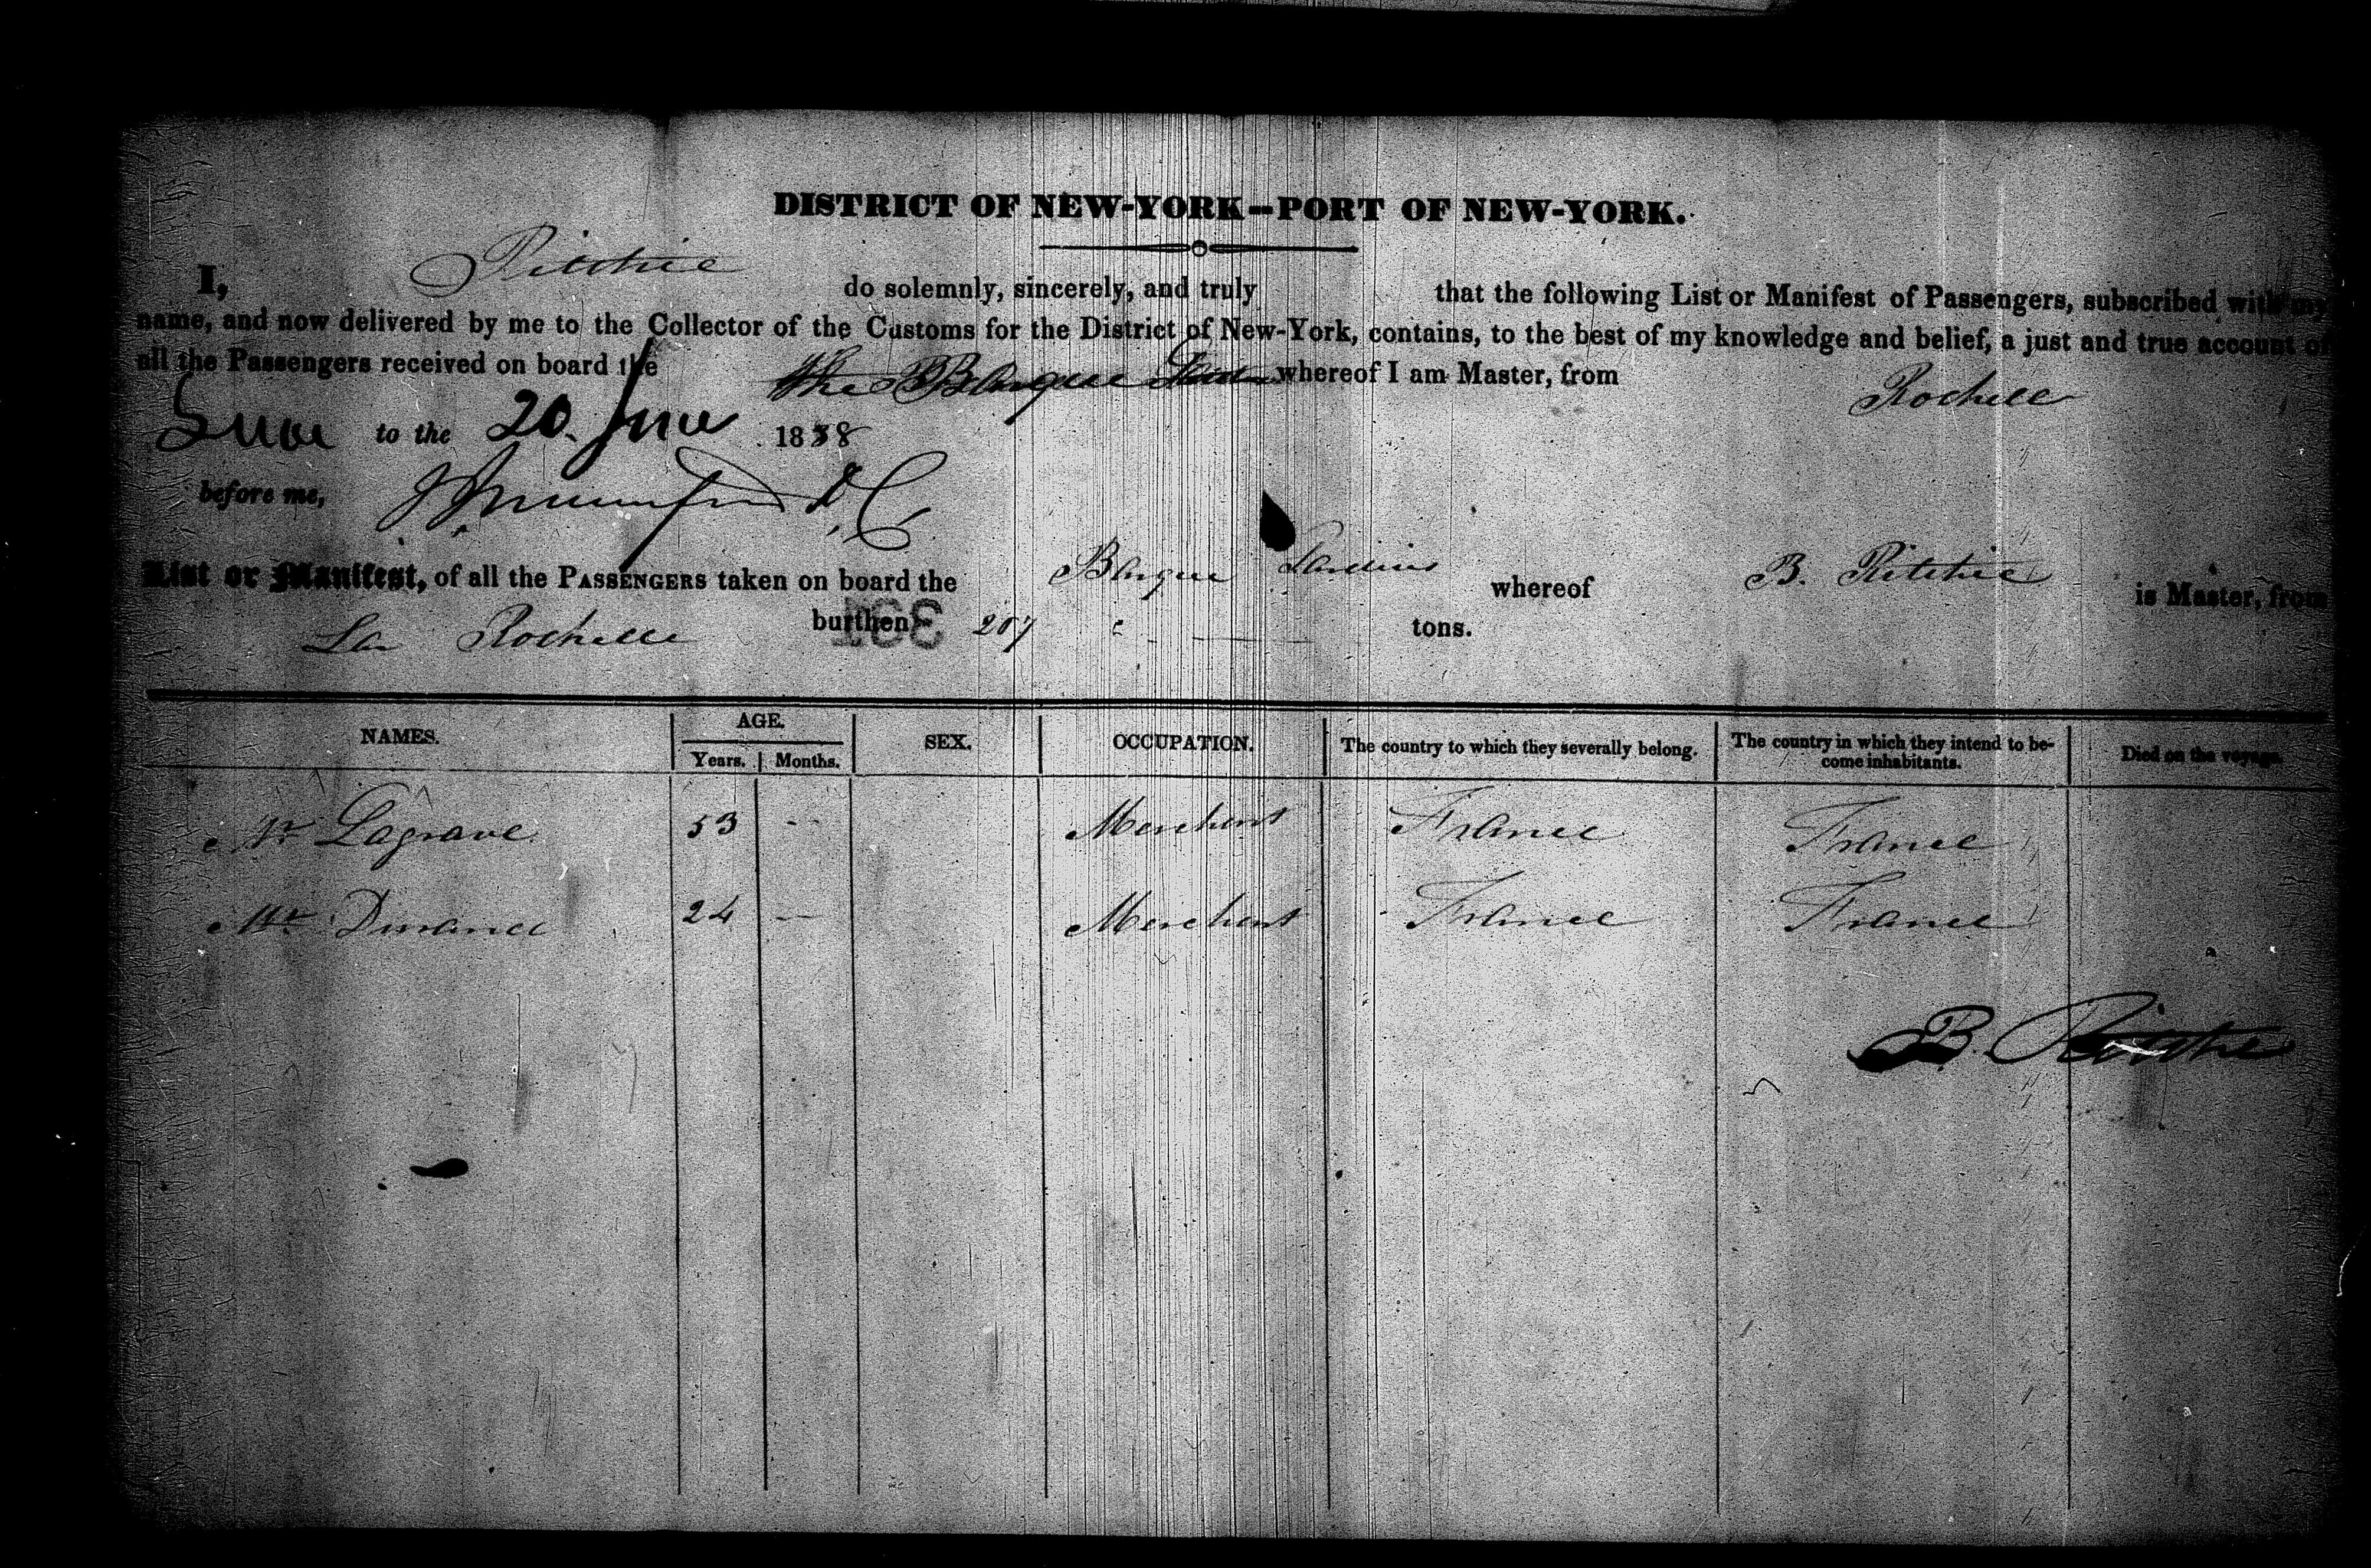 DISTRICT OF NEW-YORK—PORT OF NEW-YORK.
I, Ritchie do solemnly, sincerely, and truly that the following List or Manifest of Passengers, subscribed with my
name, and now delivered by me to the Collector of the Customs for the District of New-York, contains, to the best of my knowledge and belief, a just and true account of
all the Passengers received on board the the Barque whereof I am Master, from Rochelle
to the 20. June 1838
before me,
List or Manifest, of all the PASSENGERS taken on board the Barque whereof B. Ritchie is Master, from
La Rochelle burthen 207 tons.
NAMES. AGE. Years. Months. SEX. OCCUPATION. The country to which they severally belong. The country in which they intend to become inhabitants. Died on the voyage.
Mr Lagrave 53 -- Merchant France France
Mr 24 — Merchant France France
B. Ritchie